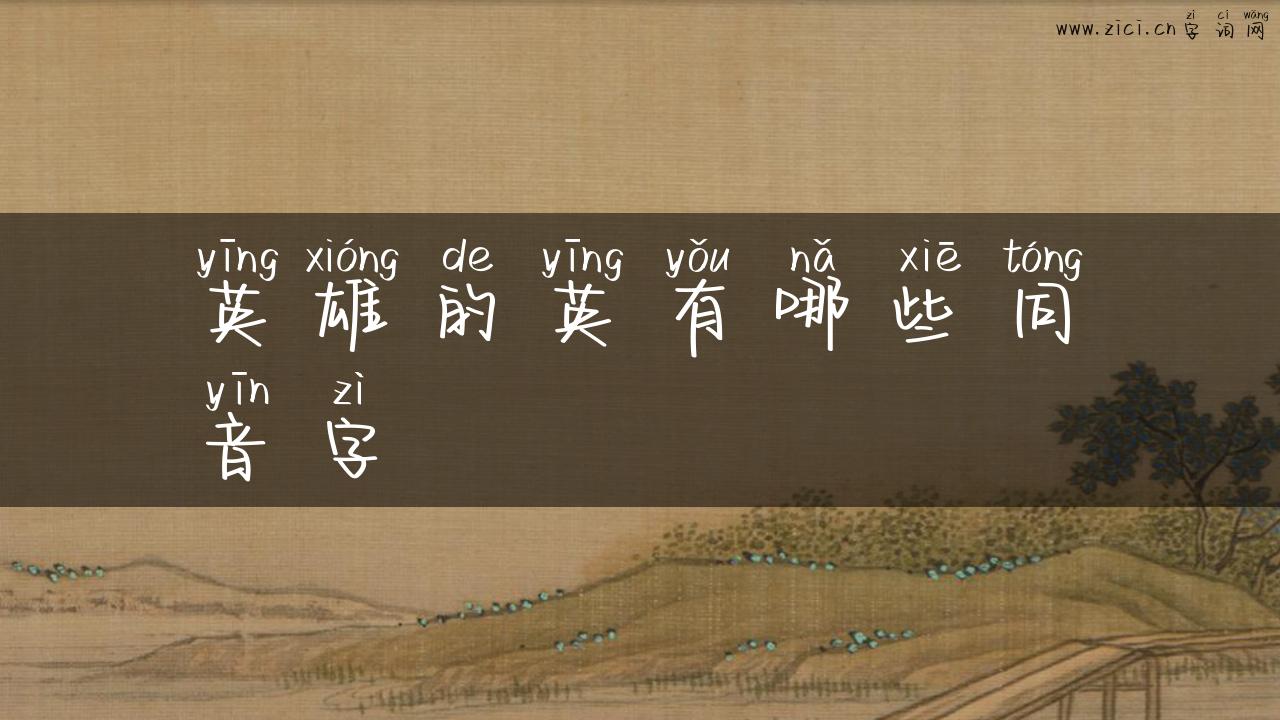 zì cí wǎng
www.zici.cn字词网
yīng xióng de yīng yǒu nǎ xiē tóng
英雄的英有哪些同
yīn zì
音字